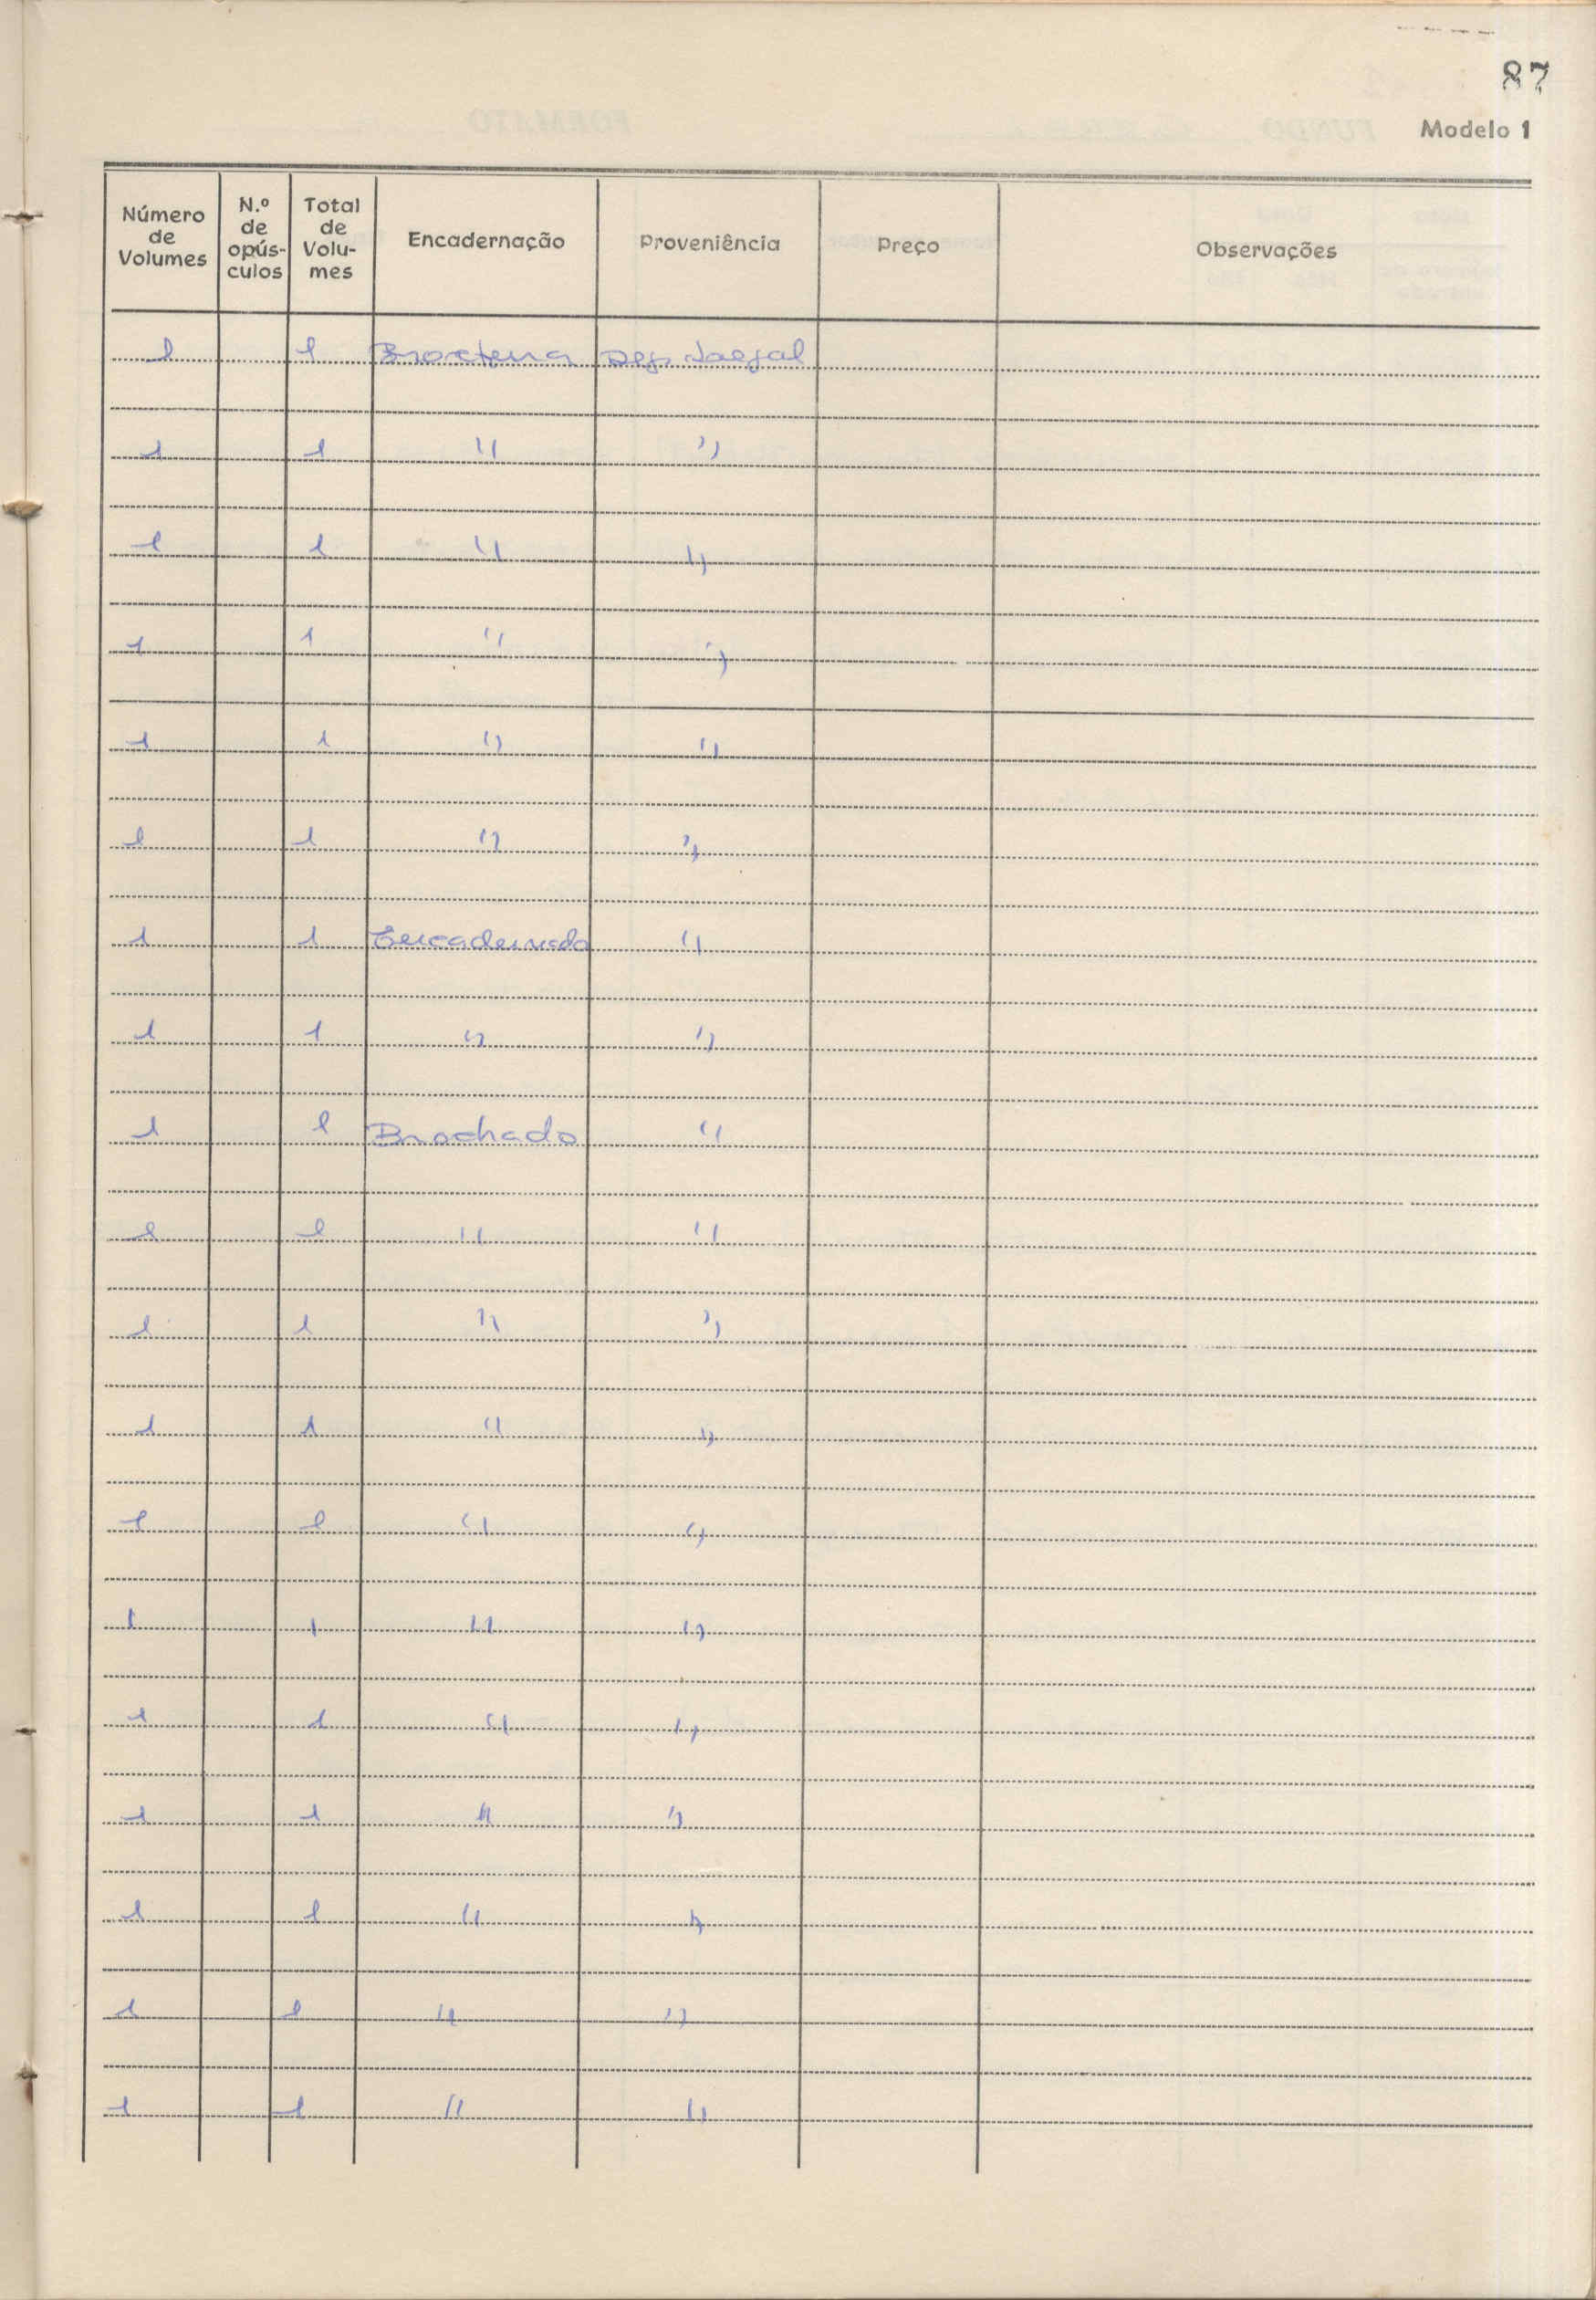 87
Modelo 1
Número de Volumes | N.º de opús-culos | Total de Volu-mes | Encadernação | Proveniência | Preço | Observações
1 | | 1 | | Dep. |
1 | | 1 | " | "
1 | | 1 | " | "
1 | | 1 | " | "
1 | | 1 | " | "
1 | | 1 | " | "
1 | | 1 | Encadernado | "
1 | | 1 | " | "
1 | | 1 | Brochado | "
1 | | 1 | " | "
1 | | 1 | " | "
1 | | 1 | " | "
1 | | 1 | " | "
1 | | 1 | " | "
1 | | 1 | " | "
1 | | 1 | " | "
1 | | 1 | " | "
1 | | 1 | " | "
1 | | 1 | " | "